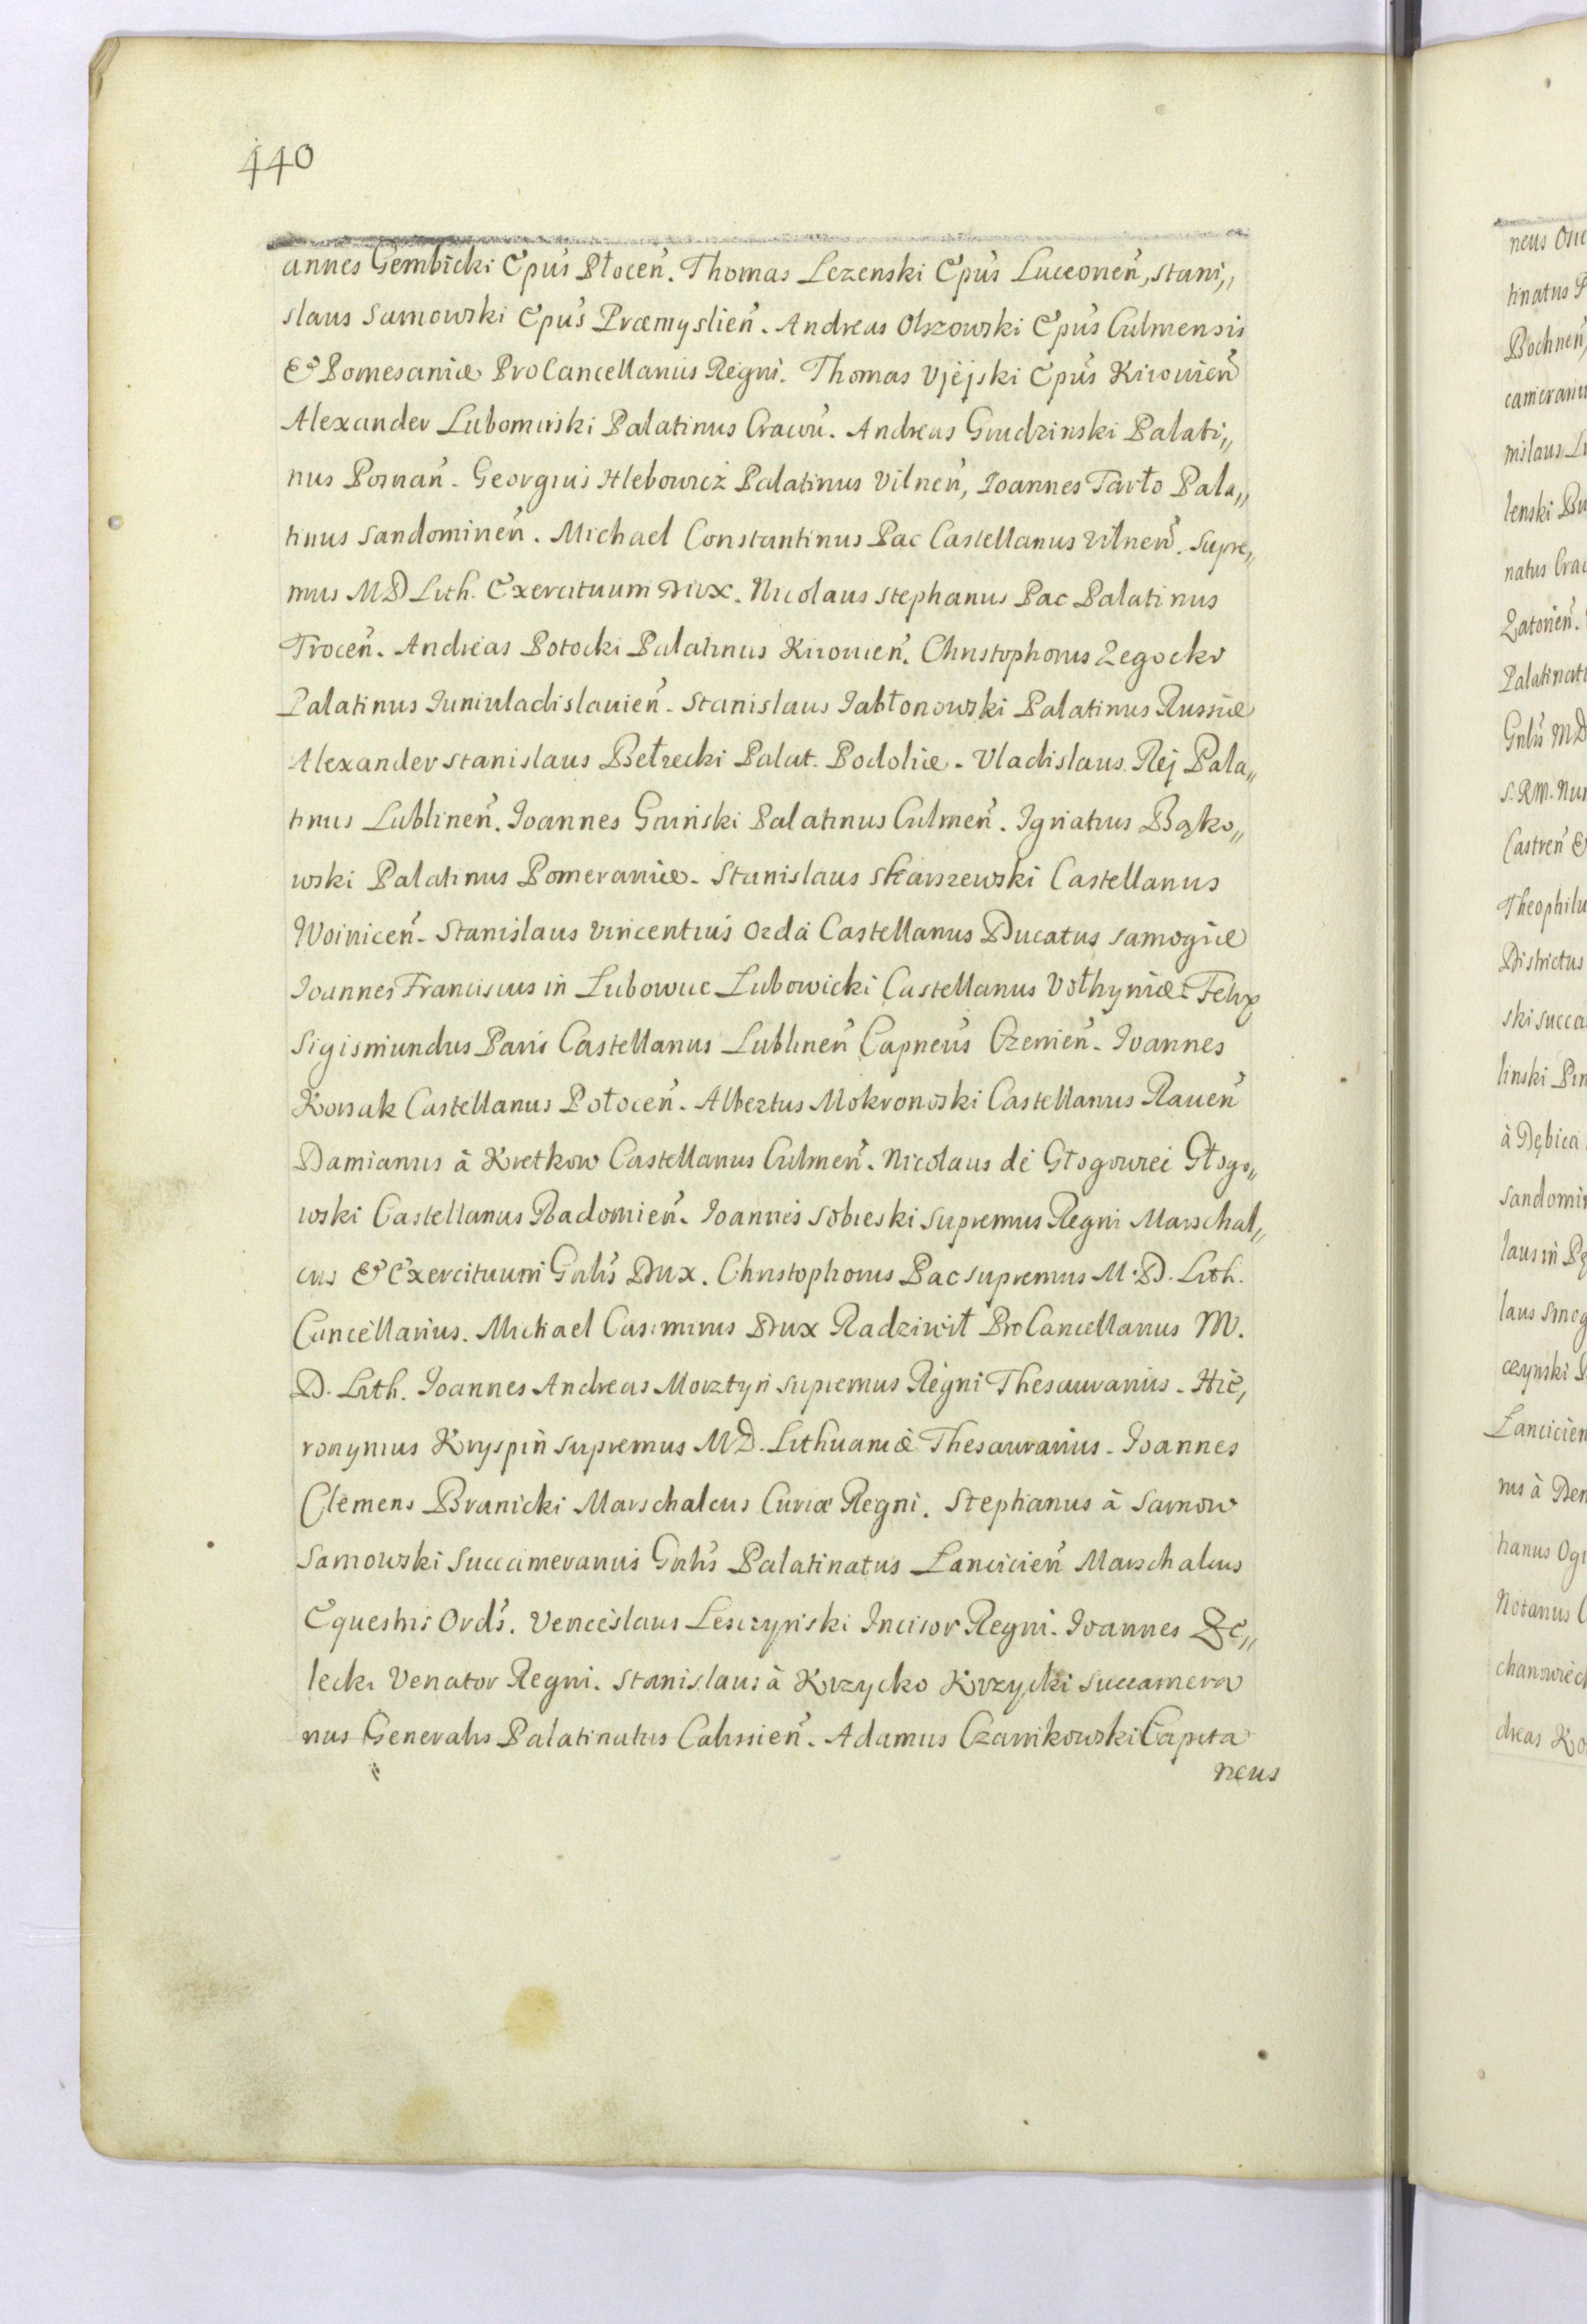 440
annes Gembicki Epus Płoceń. Thomas Lezenski Epus Luceoneń, Stani,,
slaus Sarnowski Epus Præmyslień. Andreas Olszowski Epus Culmensis
& Pomesaniæ ProCancellarius Regni. Thomas Vjejski Epus Kiiowień
Alexander Lubomirski Palatinus Cracoù. Andreas Grudzinski Palati,,
nus Posnań. Georgius Hlebowicz Palatinus Vilneń, Ioannes Tarło Pala,,
tinus Sandomireń. Michael Constantinus Pac Castellanus Vilneń. Supre,,
mus MD Lith. Exercituum Dux. Nicolaus Stephanus Pac Palatinus
Troceń. Andreas Potocki Palatinus Kiiowień. Christophorus Zegocki
Palatinus Iuniuladislauień. Stanislaus Jabłonowski Palatinus Russiæ
Alexander Stanislaus Bełzecki Palat. Podoliæ. Vladislaus Rej Pala,,
tinus Lublineń. Ioannes Gniński Palatinus Culmeń. Ignatius Bąko,,
wski Palatinus Pomeraniæ. Stanislaus Skarszewski Castellanus
Woiniceń. Stanislaus Vincentius Orda Castellanus Ducatus Samogiæ
Ioannes Franciscus in Lubowiec Lubowicki Castellanus Vołhyniæ. Felix
Sigismundus Paris Castellanus Lublineń Capneus Czerień. Ioannes
Korsak Castellanus Połoceń. Albertus Mokronoski Castellanus Raueń
Damianus à Kretkow Castellanus Culmeń. Nicolaus de Głogowiei Głogo,,
wski Castellanus Radomień. Ioannes Sobieski Supremus Regni Marschal,,
cus & Exercituum Gnlis Dux. Christophorus Pac Supremus M.D. Lith.
Cancellarius. Michael Casimirus Dux Radziwił ProCancellarius M.
D. Lith. Ioannes Andreas Morztyn Supremus Regni Thesaurarius. Hie,
ronymus Kryspin Supremus MD. Lithuaniæ Thesaurarius. Ioannes
Clemens Branicki Marschalcus Curiæ Regni. Stephanus à Sarnow
Sarnowski Succamerarius Gnlis Palatinatus Lancicień Marschalcus
Equestris Ord's. Venceslaus Lesczynski Incisor Regni. Ioannes Ze,,
lecki Venator Regni. Stanislaus à Krzycko Krzycki Succamera
nus Generalis Palatinatus Calissień. Adamus Czarnkowski Capita
neus
neus
tinatus
Bochneń
camerariu
milaus
lenski
natus
Zatorień.
Palatinat
Gnlis MD
S. RM.
Castreń &
Theophilu
Districtus
ski succa
linski
à Dębica
Sandomir
laus in
laus
Lancicien
rus à Den
hanus
Notarius
chanowieck
dreas